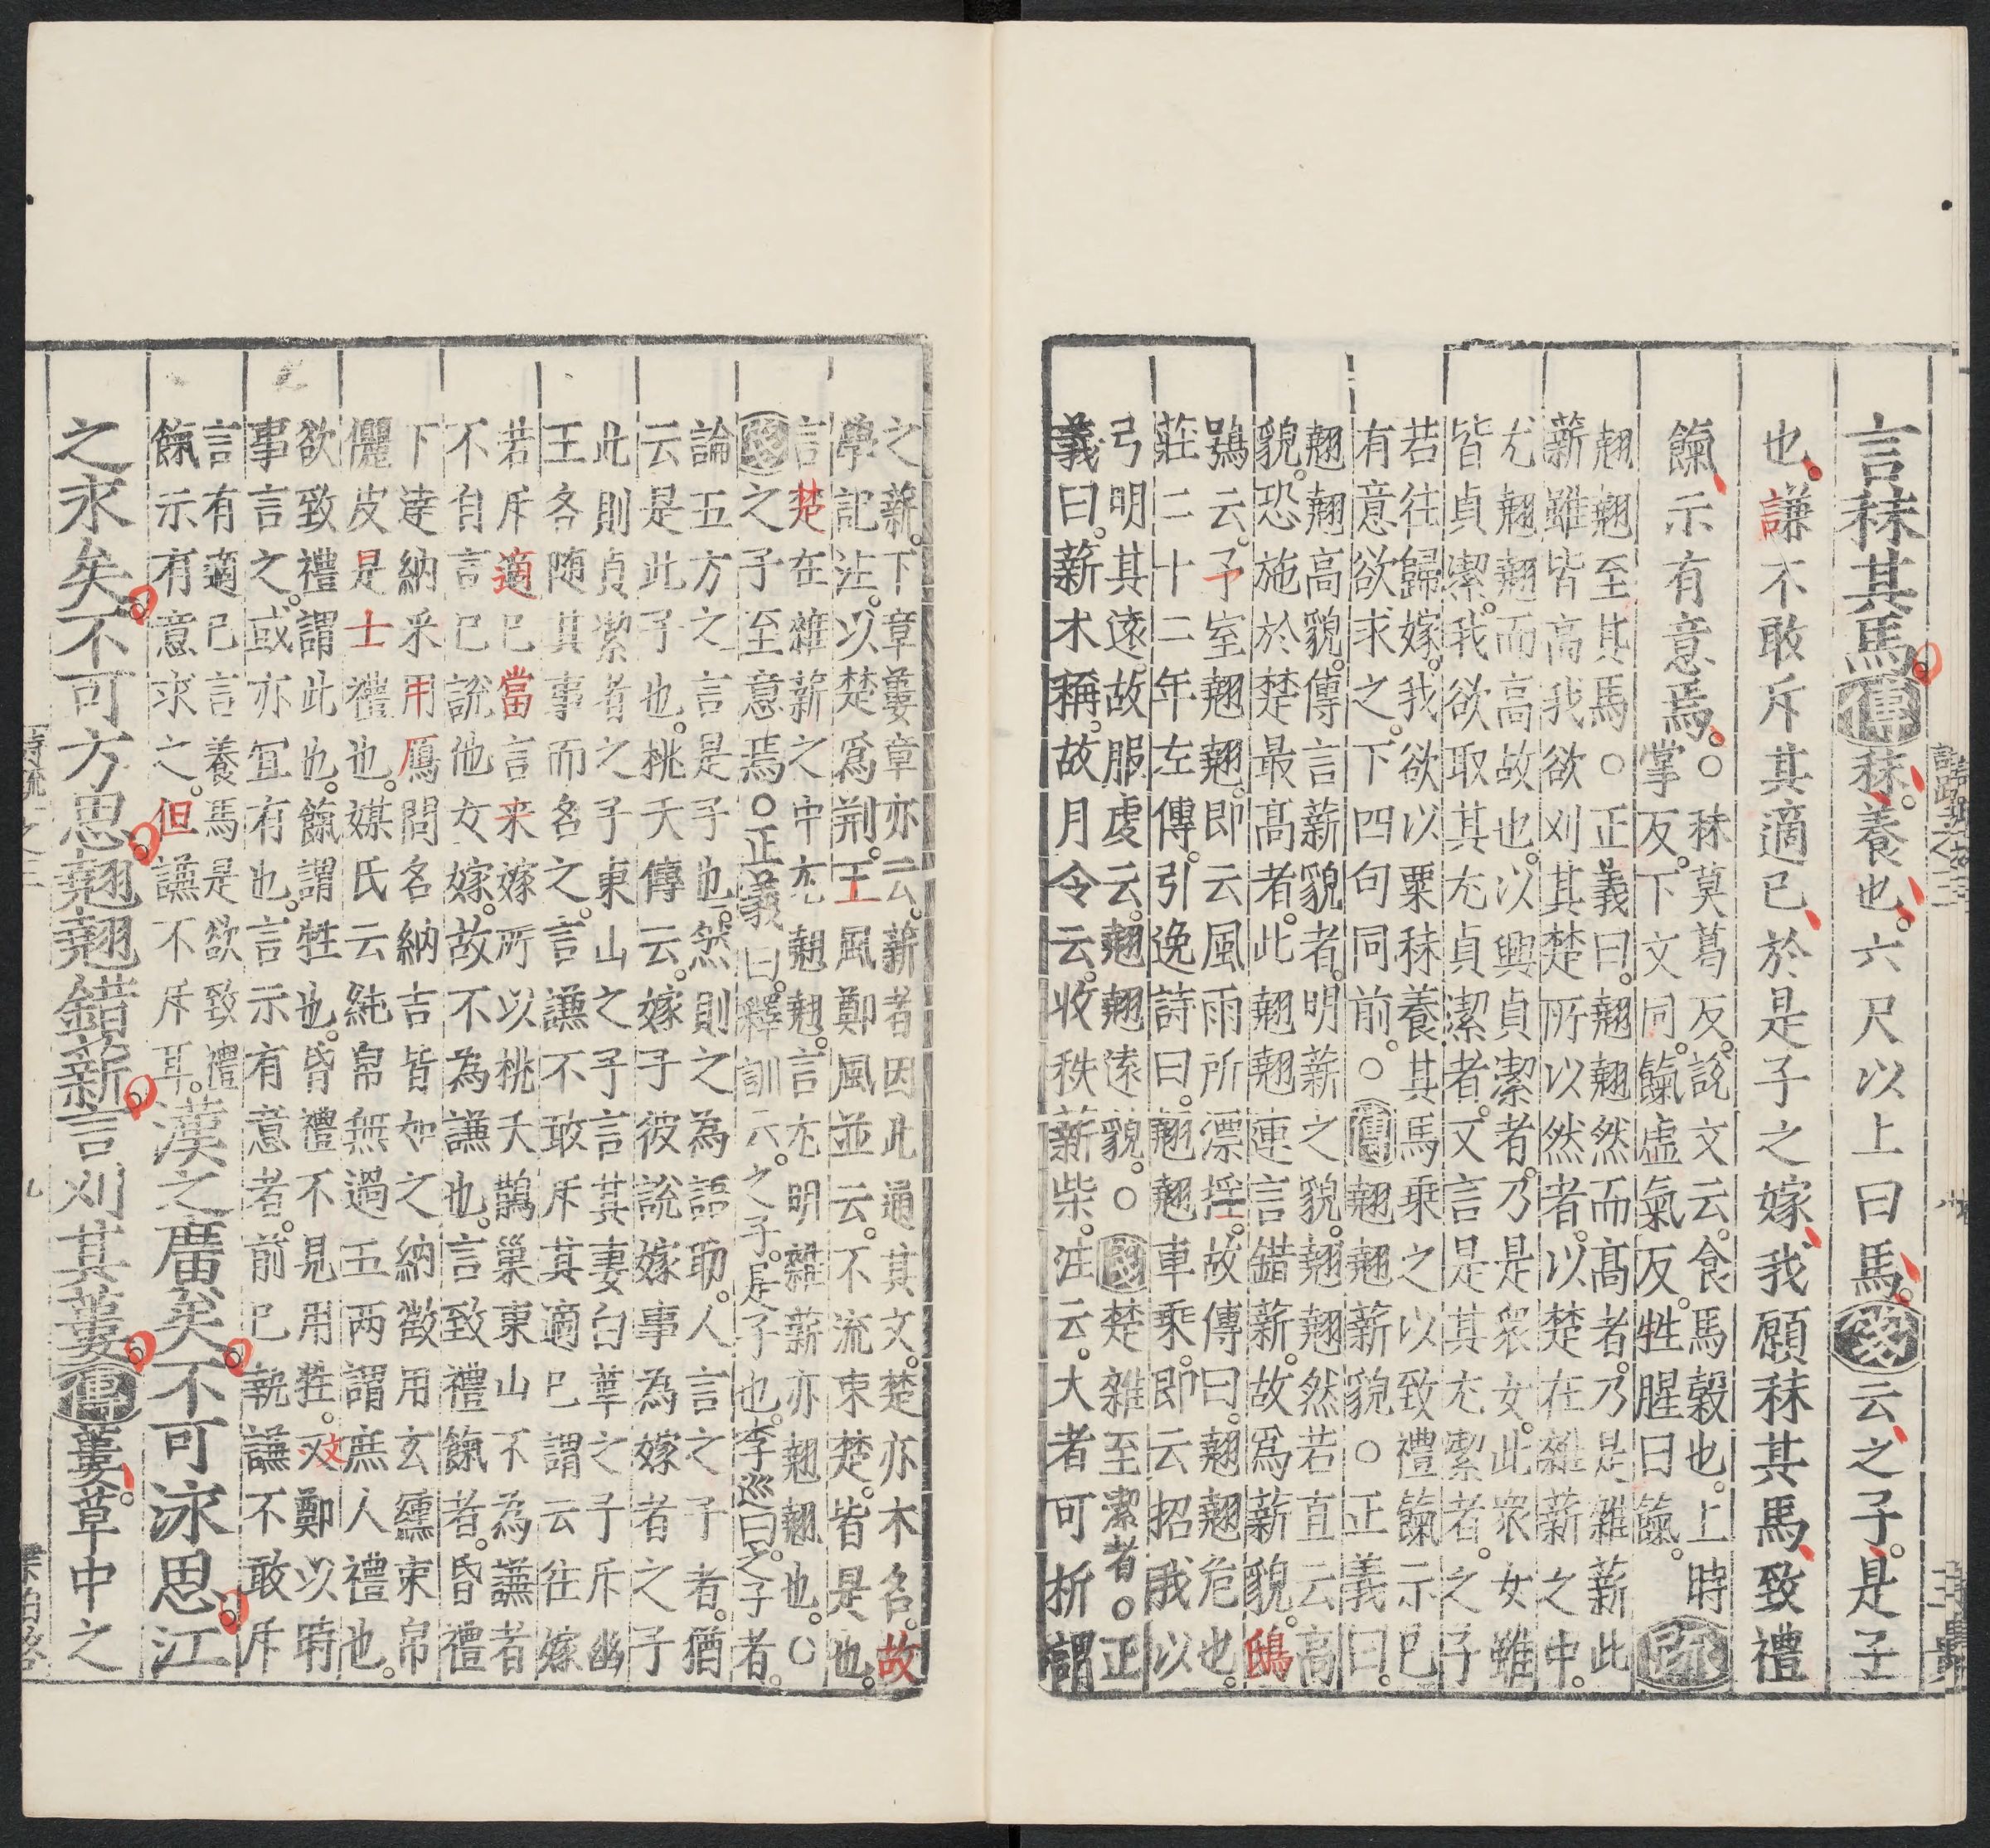 言秣其馬傳秣養也六尺以上曰馬箋云之子是子
也謙不敢斥其適已於是子之嫁我願秣其馬致禮
餼示有意焉○秣莫葛反說文云食馬穀也上時
掌反下文同餼虛氣反牲腥曰餼疏
翹翹至其馬○正義曰翹翹然而高者乃是雜薪此
薪雖皆高我欲刈其楚所以然者以楚在雜薪之中
尤翹翹而高故也以興貞潔者乃是衆女此衆女雖
皆貞潔我欲取其尤貞潔者又言是其尤潔者之子
若往歸嫁我欲以粟秣養其馬乘之以致禮餼示已
有意欲求之下四句同前○傳翹翹薪貌○正義曰
翹翹高貌傳言薪貌者明薪之貌翹翹然若直云高
貌恐施於楚最高者此翹翹連言錯薪故爲薪貌鴟
鴞云予室翹翹即云風雨所漂揺故傳曰翹翹危也
莊二十二年左傳引逸詩曰翹翹車乘即云招我以
弓明其遠故服虔云翹翹遠貌○箋楚雜至潔者○正
義曰薪木稱故月令云收秩薪柴注云大者可析謂
之薪下章蔞章亦云薪者因此通其文楚亦木名故
學記注以楚爲荆王風鄭風並云不流束楚皆是也
言楚在雜薪之中尤翹翹言尤明雜薪亦翹翹也○
箋之子至意焉○正義曰釋訓云之子是子也李巡曰之子者
論五方之言是子也然則之為語助人言之子者猶
云是此子也桃夭傳云嫁子彼說嫁事為嫁者之子
此則貞潔者之子東山之子言其妻白華之子斥幽
王各随其事而名之言謙不敢斥其適已謂云往嫁
若斥適已當言来嫁所以桃夭鵲巢東山不為謙者
不自言已說他女嫁故不為謙也言致禮餼者昏禮
下達納采用鴈問名納吉皆如之納徵用玄纁束帛
儷皮是士禮也媒氏云純帛無過五两謂庶人禮也
欲致禮謂此也餼謂牲也昏禮不見用牲文鄭以時
事言之或亦宜有也言示有意者前已執謙不敢斥
言有適已言養馬是欲致禮
餼示有意求之但謙不斥耳漢之廣矣不可泳思江
之永矣不可方思翹翹錯薪言刈其蔞傳蔞草中之